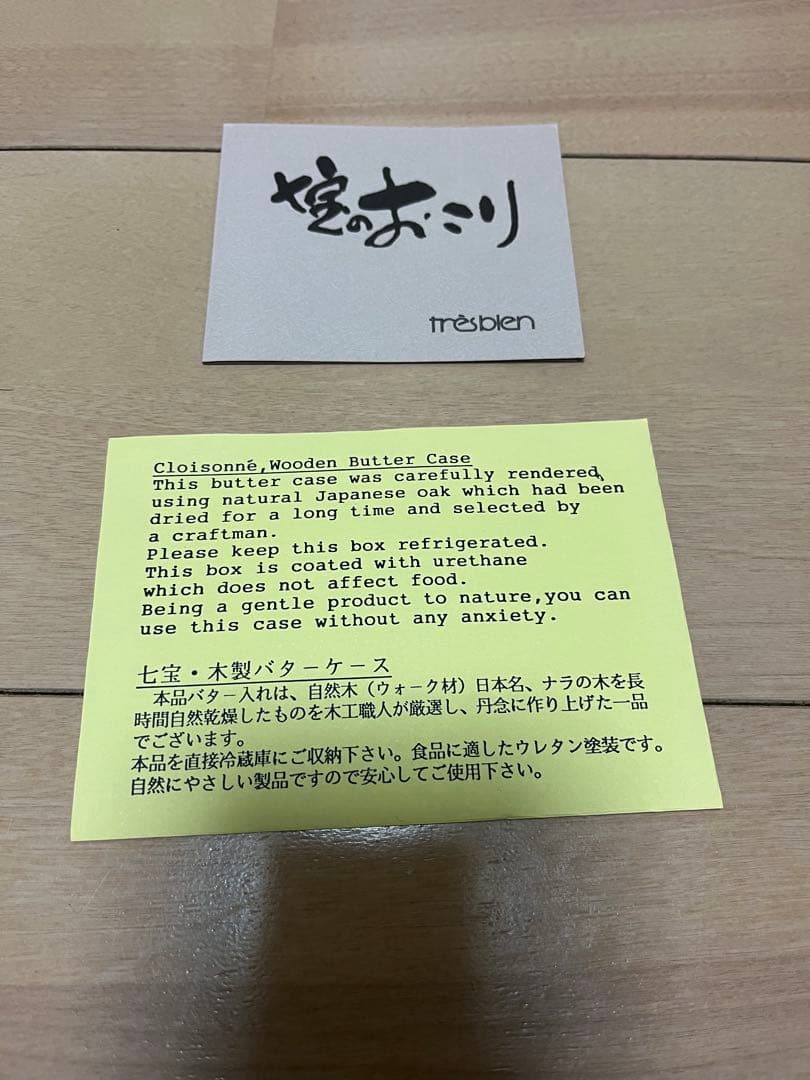 七宝のおこり
trèsbien
Cloisonné,Wooden Butter Case
This butter case was carefully rendered,
using natural Japanese oak which had been
dried for a long time and selected by
a craftman.
Please keep this box refrigerated.
This box is coated with urethane
which does not affect food.
Being a gentle product to nature,you can
use this case without any anxiety.
七宝・木製バターケース
本品バター入れは、自然木（ウォーク材）日本名、ナラの木を長
時間自然乾燥したものを木工職人が厳選し、丹念に作り上げた一品
でございます。
本品を直接冷蔵庫にご収納下さい。食品に適したウレタン塗装です。
自然にやさしい製品ですので安心してご使用下さい。